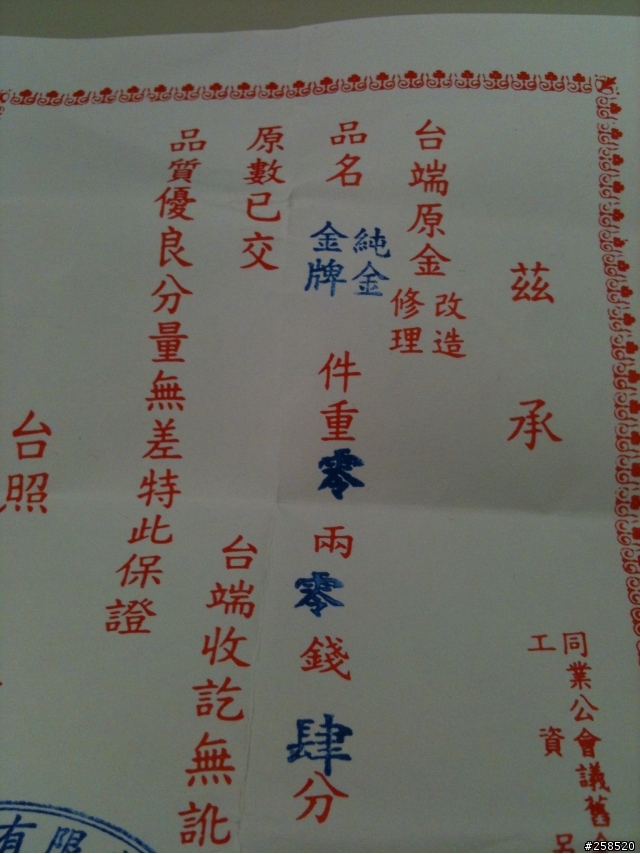 同業公會議舊
工資
茲承
台端原金改造修理
品名純金金牌件重零兩零錢肆分
原數已交台端收訖無訛
品質優良分量無差特此保證
台照
有限
#258520